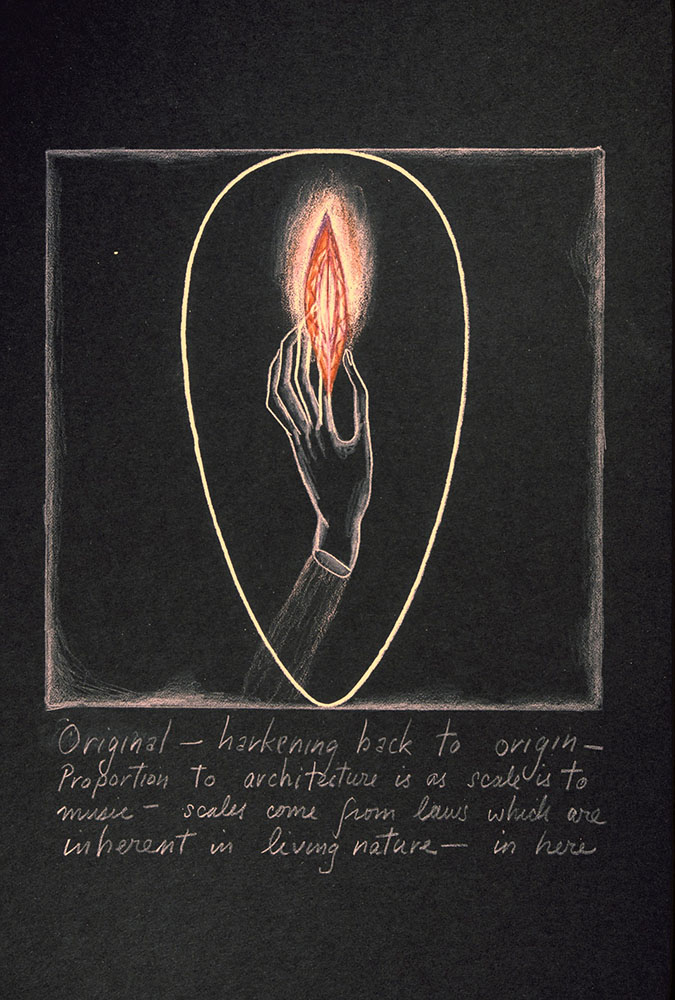 Original — harkening back to origin —
Proportion to architecture is as scale is to
music — scales come from laws which are
inherent in living nature — in here